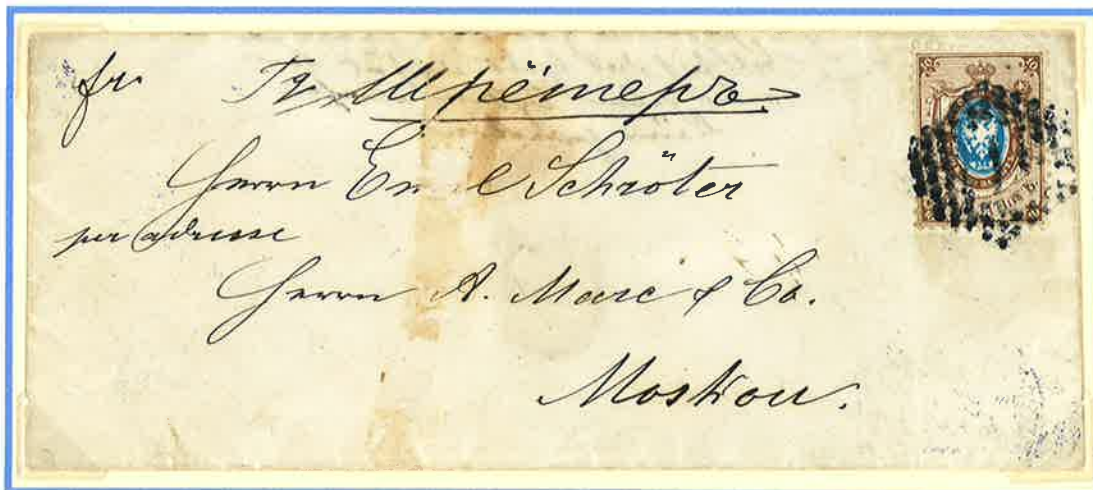 fr. Гг. Шрётеръ
Herrn Em l Schröter
per adresse
Herrn A. Marc & Co.
Moskou.